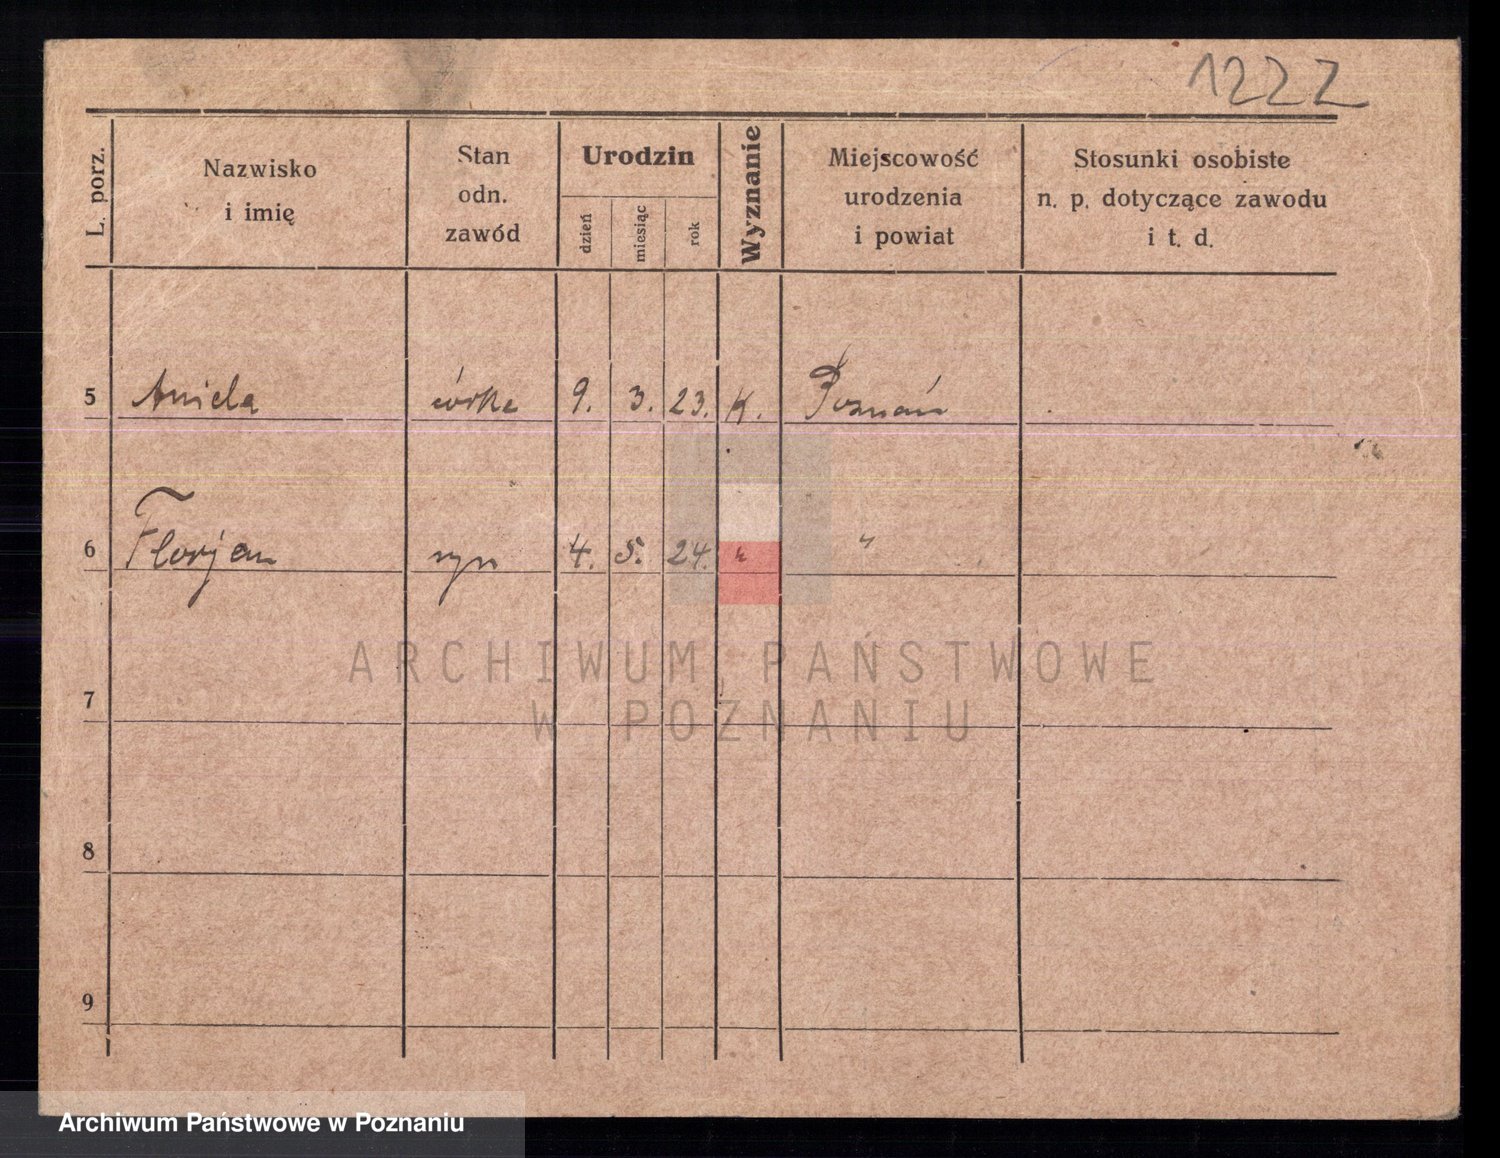 1222
L. porz.
Nazwisko
i imię
Stan
odn.
zawód
Urodzin
dzień
miesiąc
rok
Wyznanie
Miejscowość
urodzenia
i powiat
Stosunki osobiste
n. p. dotyczące zawodu
i t. d.
5 Aniela córka 9. 3. 23. K. Poznań
6 Florjan syn 4. 5. 24. " "
ARCHIWUM PAŃSTWOWE
W POZNANIU
7
8
9
Archiwum Państwowe w Poznaniu